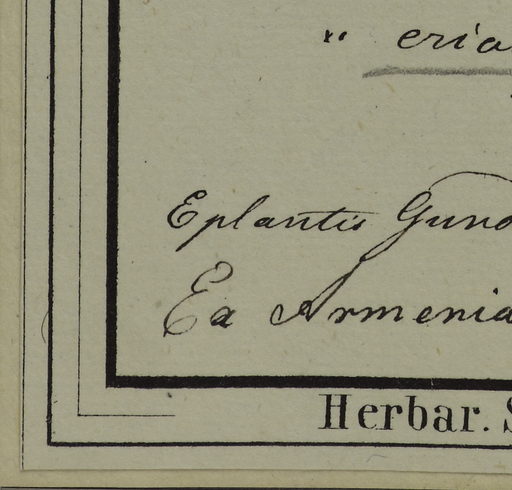 " eria
Eplantis Guno
Ea Armenia
Herbar. S